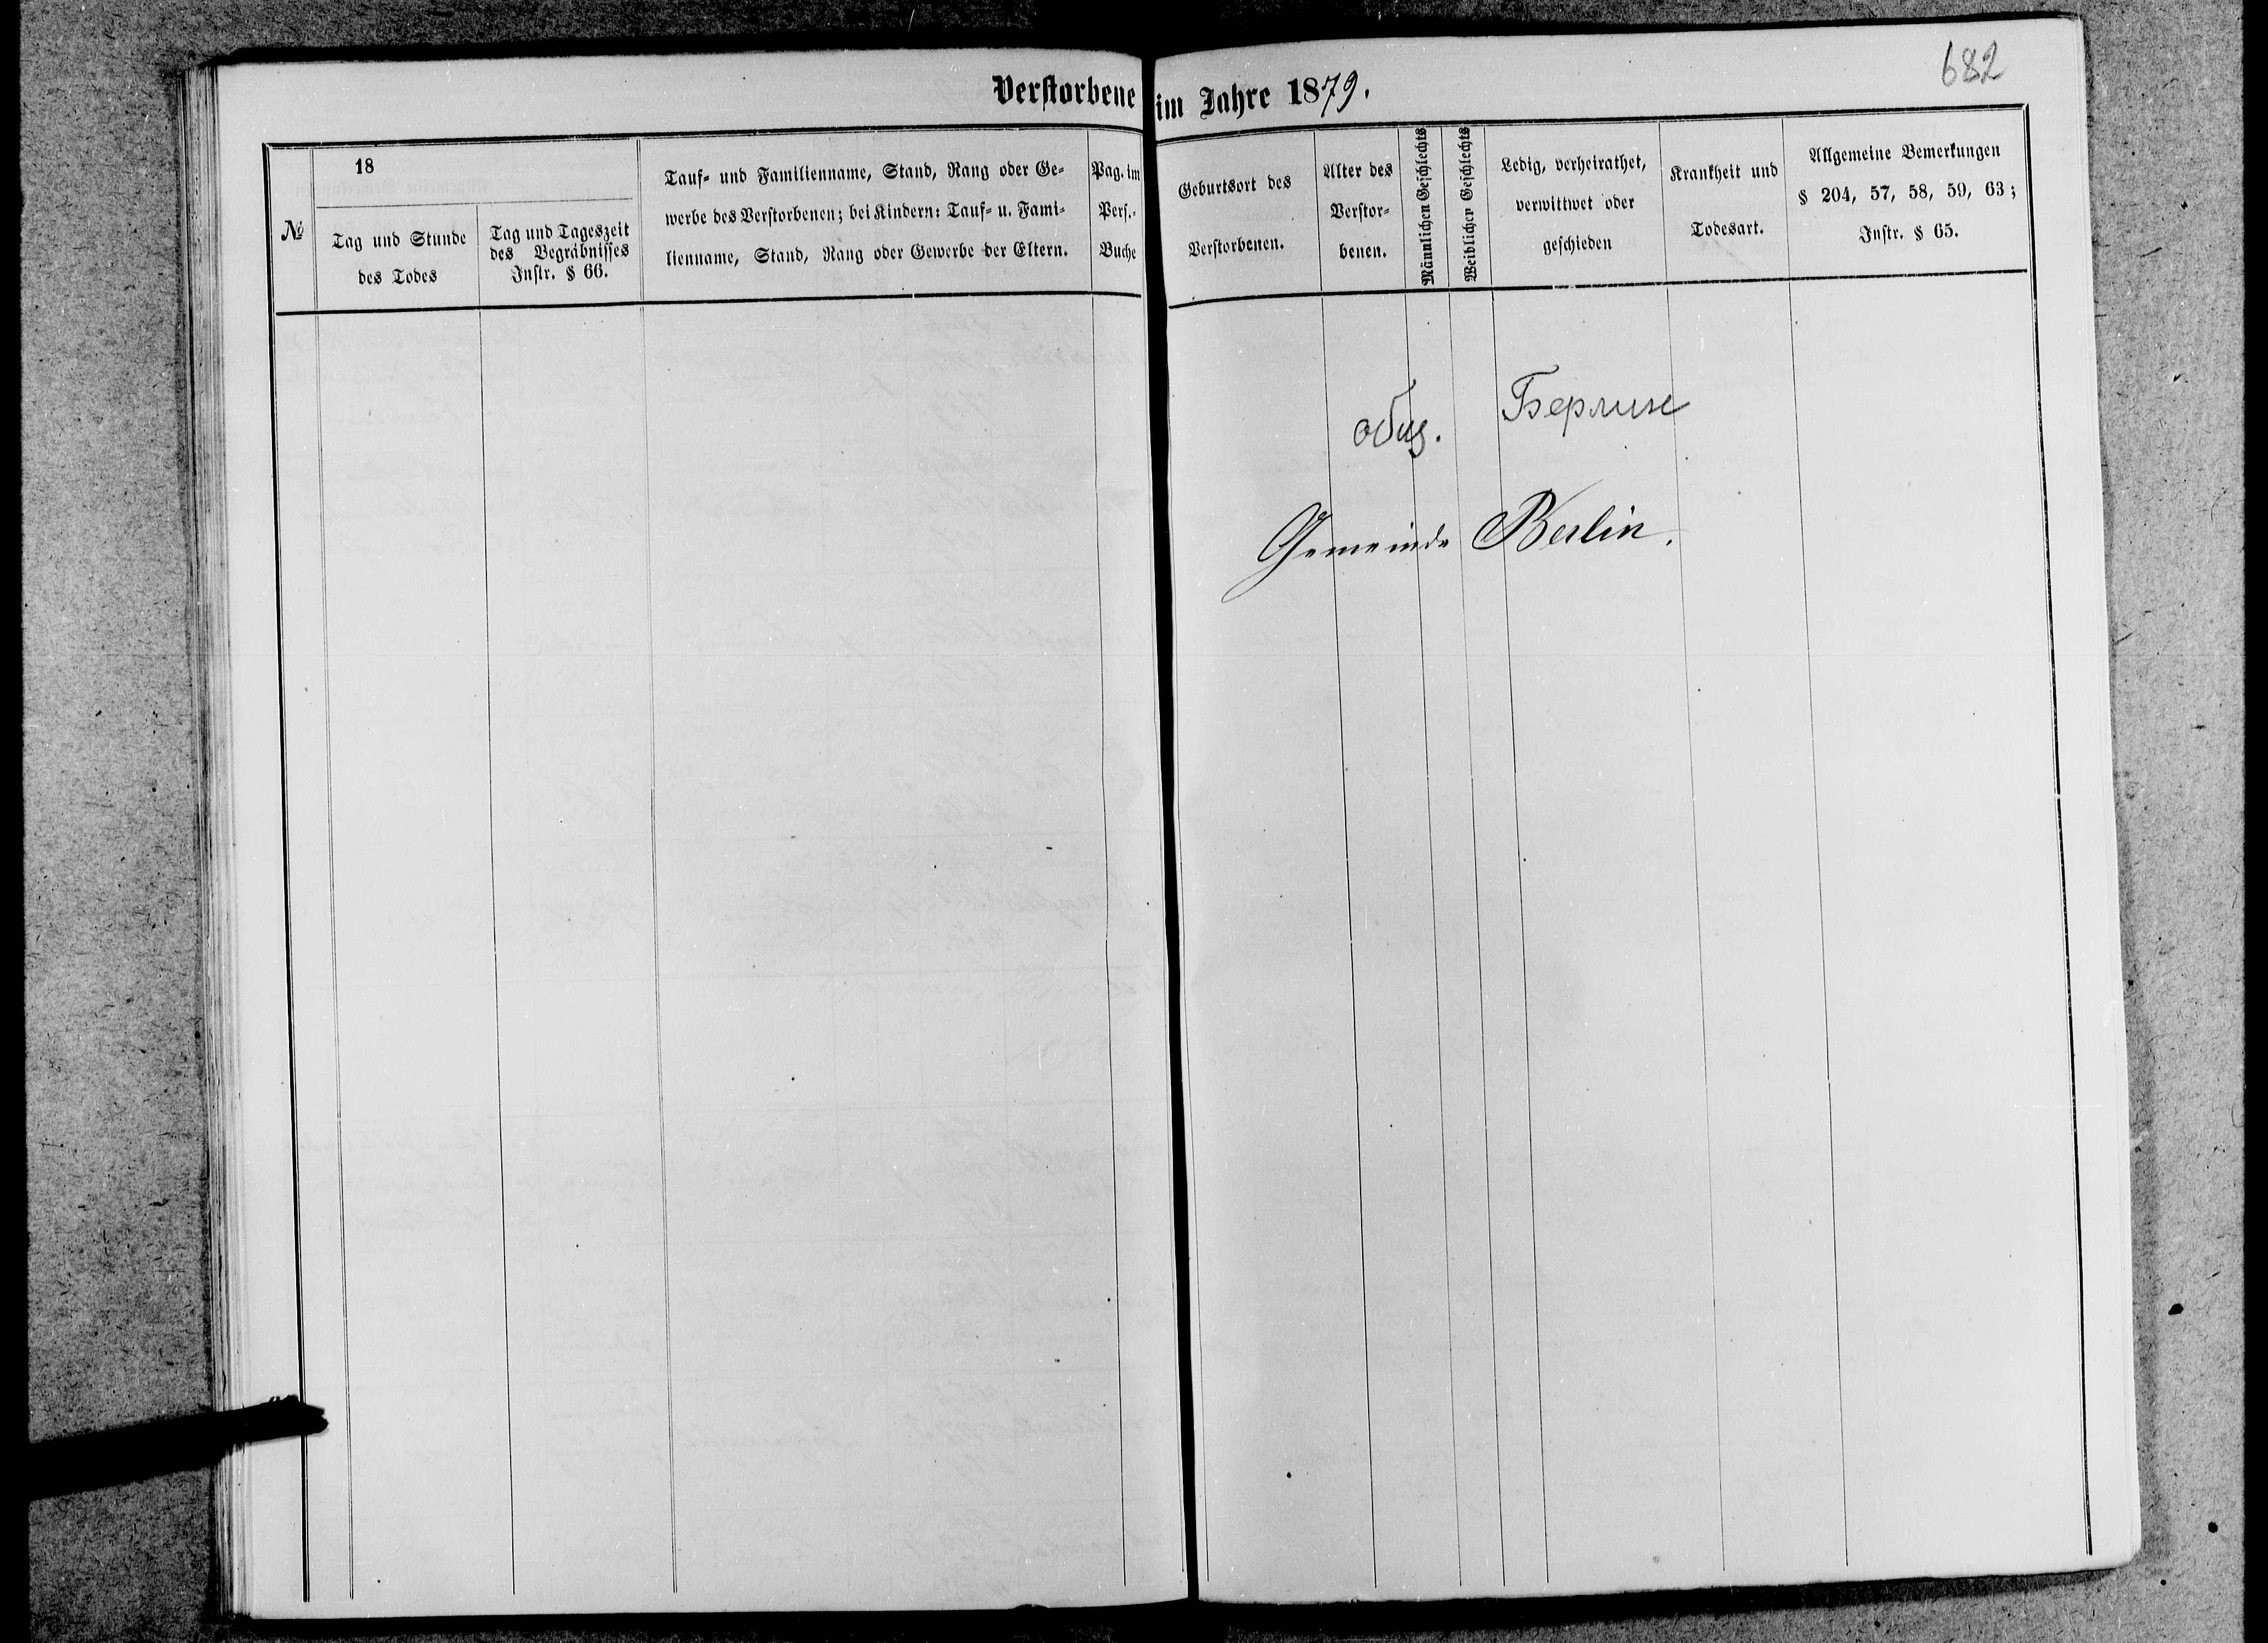 682
Verstorbene im Jahre 1879.
№
18
Tag und Stunde
des Todes
Tag und Tageszeit
des Begräbnisses
Instr. § 66.
Tauf- und Familienname, Stand, Rang oder Ge-
werbe des Verstorbenen; bei Kindern: Tauf- u. Fami-
lienname, Stand, Rang oder Gewerbe der Eltern.
Pag. im
Pers.-
Buche
Geburtsort des
Verstorbenen.
Alter des
Verstor-
benen.
Männlichen Geschlechts
Weiblichen Geschlechts
Ledig, verheirathet,
verwittwet oder
geschieden
Krankheit und
Todesart.
Allgemeine Bemerkungen
§ 204, 57, 58, 59, 63;
Instr. § 65.
общ. Берлин
Gemeinde Berlin.